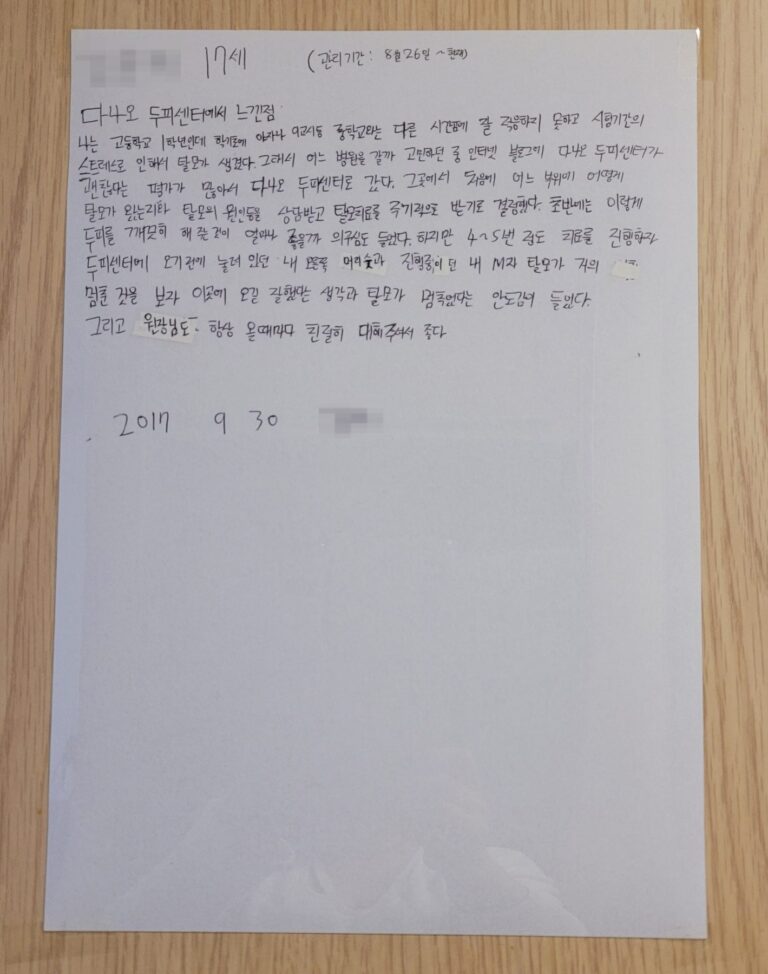 17세 (관리기간: 8월 26일 ~ 현재)
다나오 두피센터에서 느낀점
나는 고등학교 1학년인데 학기초에 야자나 9교시등 중학교와는 다른 시간표에 잘 적응하지 못하고 시험기간의
스트레스로 인해서 탈모가 생겼다. 그래서 어느 병원을 갈까 고민하던 중 인터넷 블로그에 다나오 두피센터가
괜찮다는 평가가 많아서 다나오 두피센터로 갔다. 그곳에서 처음에 어느 부위에 어떻게
탈모가 왔는지와 탈모의 원인등을 상담받고 탈모치료를 주기적으로 받기로 결정했다. 초반에는 이렇게
두피를 깨끗히 해 준 것이 얼마나 좋을까 의구심도 들었다. 하지만 4~5번 정도 치료를 진행하자
두피센터에 오기전에 눌려 있던 내 오른쪽 머리숱과 진행중이던 내 M자 탈모가 거의
멈춘 것을 보자 이곳에 오길 잘했다는 생각과 탈모가 멈추었다는 안도감이 들었다.
그리고 원장님도 항상 올때마다 친절히 대해주셔서 좋다
2017 9 30